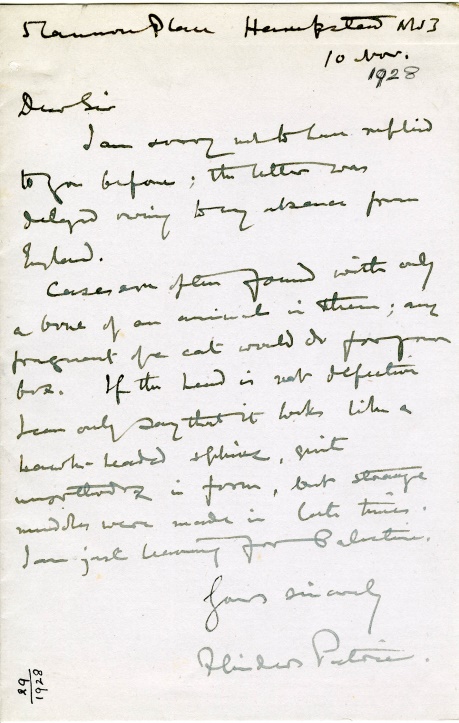 5 Cannon Place Hampstead NW3
10 Nov.
1928
Dear Sir
I am sorry not to have replied
to you before; the letter was
delayed owing to my absence from
England.
Cases are often found with only
a bone of an animal in them; any
fragment of a cat would do for your
box. If the head is not defective
I can only say that it looks like a
hawk-headed sphinx, quite
unorthodox in form, but strange
muddles were made in late times.
I am just leaving for Palestine.
Yours sincerely
Flinders Petrie.
29
1928